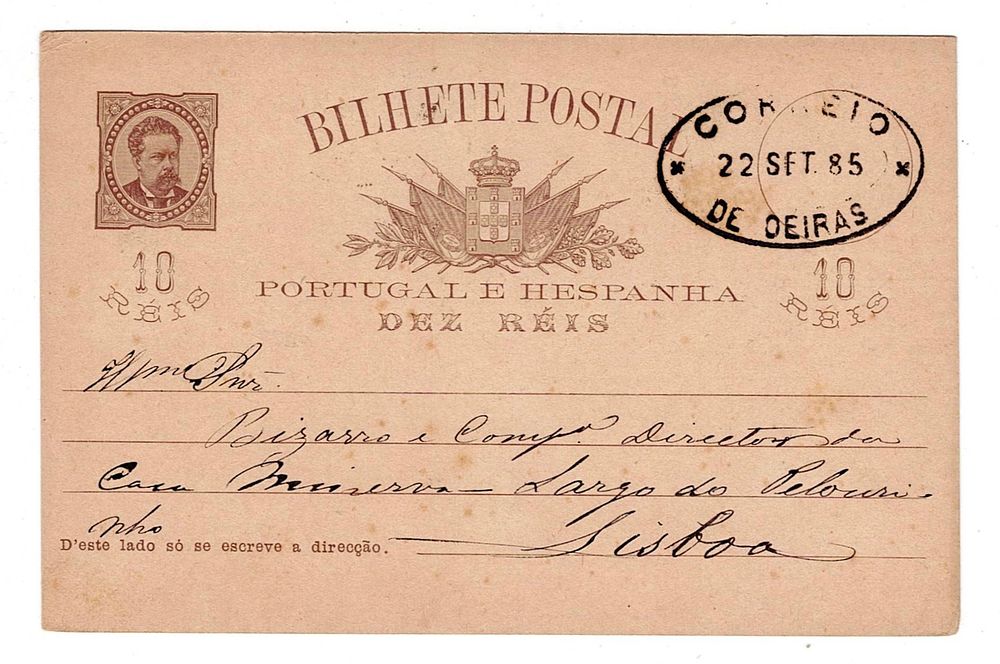 BILHETE POSTAL
CORREIO
22 SET. 85
DE OEIRAS
10
RÉIS
10
RÉIS
PORTUGAL E HESPANHA
DEZ RÉIS
Illmo Snr.
Bizarro e Compª Director da
Casa Minerva — Largo do Pelouri-
nho
D'este lado só se escreve a direcção.
Lisboa